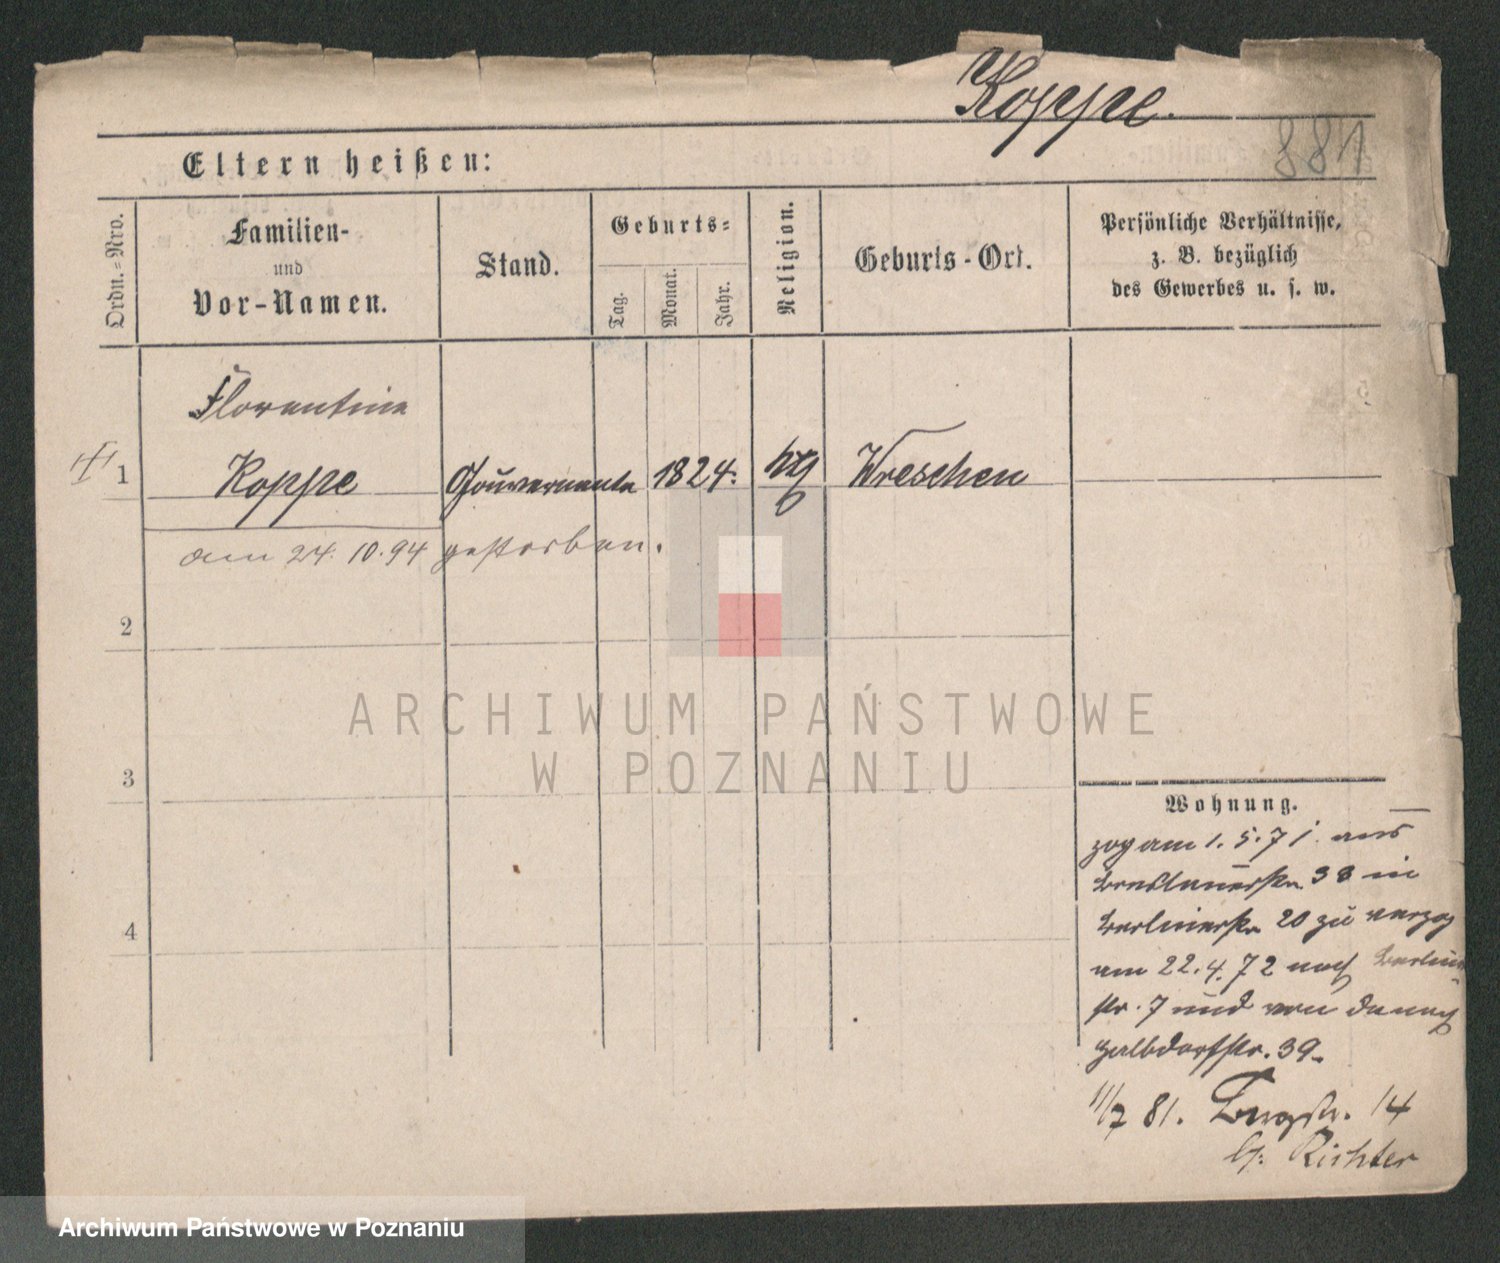 Koppe.
881
Eltern heißen:
Ordn.=Nro.
Familien-
und
Vor-Namen.
Stand.
Geburts=
Tag.
Monat.
Jahr.
Religion.
Geburts-Ort.
Persönliche Verhältnisse,
z. B. bezüglich
des Gewerbes u. s. w.
Florentine
1 Koppe Gouvernante 1824. Wreschen
am 24. 10. 94 gestorben.
2
3
4
ARCHIWUM PAŃSTWOWE
W POZNANIU
Wohnung.
zog am 1. 5. 71. aus
Breslauerstr. 38 in
Berlinerstr 20 zu verzog
am 22. 4. 72 nach Berliner
str. 7 und von danach
Halbdorfstr. 39.
11/7 81. Bergstr. 14
b. Richter
Archiwum Państwowe w Poznaniu